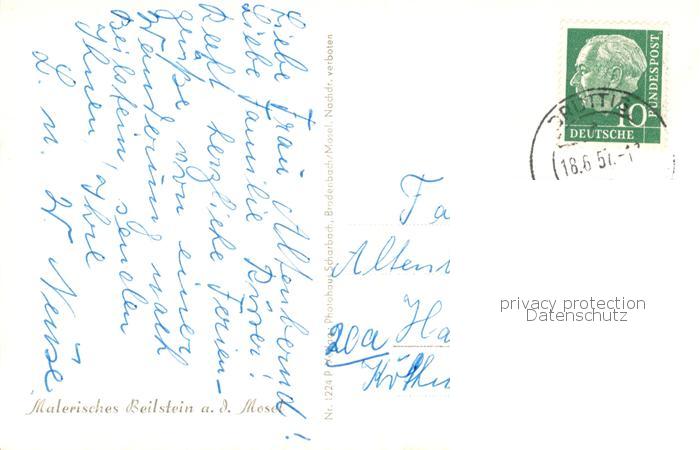 Liebe Frau Altenbernd!
Liebe Familie
Recht herzliche Ferien-
grüße von einer
Wanderung nach
Beilstein, senden
Ihnen, Ihre
L. u. W. Neuse
Malerisches Beilstein a. d. Mosel
Nr. 1224 Photohaus Scharbach, Brodenbach/Mosel. Nachdr. verboten
10
DEUTSCHE
BUNDESPOST
18.6.57.-1
Fa
Alten
20a Ha
privacy protection
Datenschutz